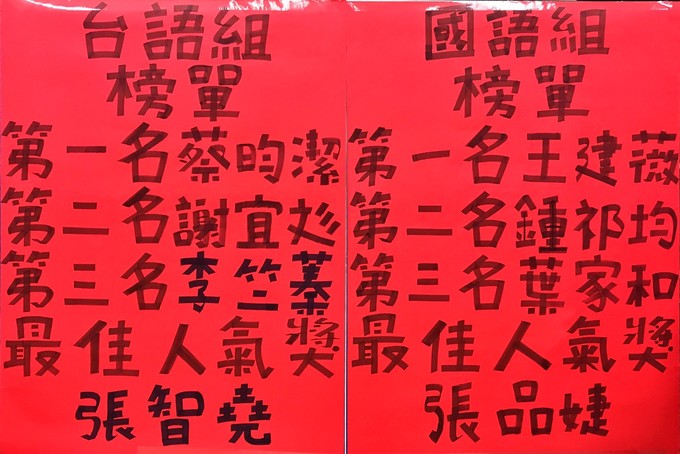 台語組
榜單
第一名蔡昀潔
第二名謝宜彣
第三名李竺蓁
最佳人氣獎
張智堯
國語組
榜單
第一名王建薇
第二名鍾祁均
第三名葉家和
最佳人氣獎
張品婕